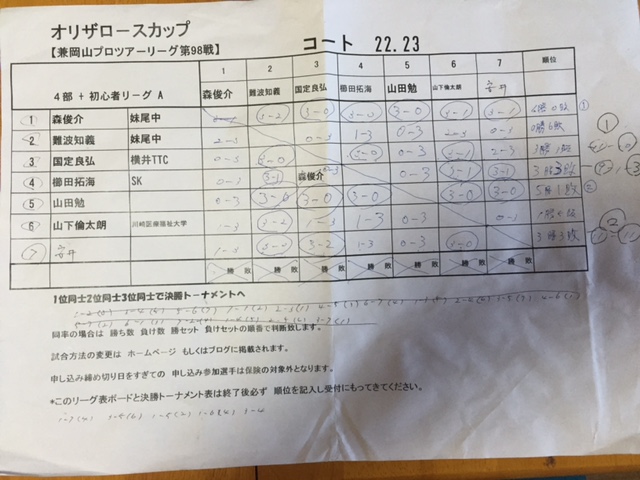 オリザロースカップ
【兼岡山プロツアーリーグ第98戦】
コート 22.23
4部 + 初心者リーグ A
1 2 3 4 5 6 7 順位
森俊介 難波知義 国定良弘 櫛田拓海 山田勉 山下倫太朗 安井
1 森俊介 妹尾中 3-2 3-0 3-0 3-0 3-1 3-1
2 難波知義 妹尾中 2-3 0-3 1-3 0-3 2-3 0-3 0勝6敗
3 国定良弘 横井TTC 0-3 3-0 3-0 0-3 3-1 2-3
4 櫛田拓海 SK 0-3 3-1 森俊介 0-3 3-1 3-1 3勝3敗
5 山田勉 0-3 3-0 3-0 3-0 3-0 3-0 5勝1敗 ②
6 山下倫太朗 川崎医療福祉大学 1-3 3-2 1-3 1-3 0-3 0-3
7 安井 1-3 3-0 3-2 1-3 0-3 3-0 3勝3敗
勝 敗 勝 敗 勝 敗 勝 敗 勝 敗 勝 敗 勝 敗
1位同士2位同士3位同士で決勝トーナメントへ
同率の場合は 勝ち数 負け数 勝セット 負けセットの順番で判断致します。
試合方法の変更は ホームページ もしくはブログに掲載されます。
申し込み締め切り日をすぎての 申し込み参加選手は保険の対象外となります。
*このリーグ表ボードと決勝トーナメント表は終了後必ず 順位を記入し受付にもってきてください。